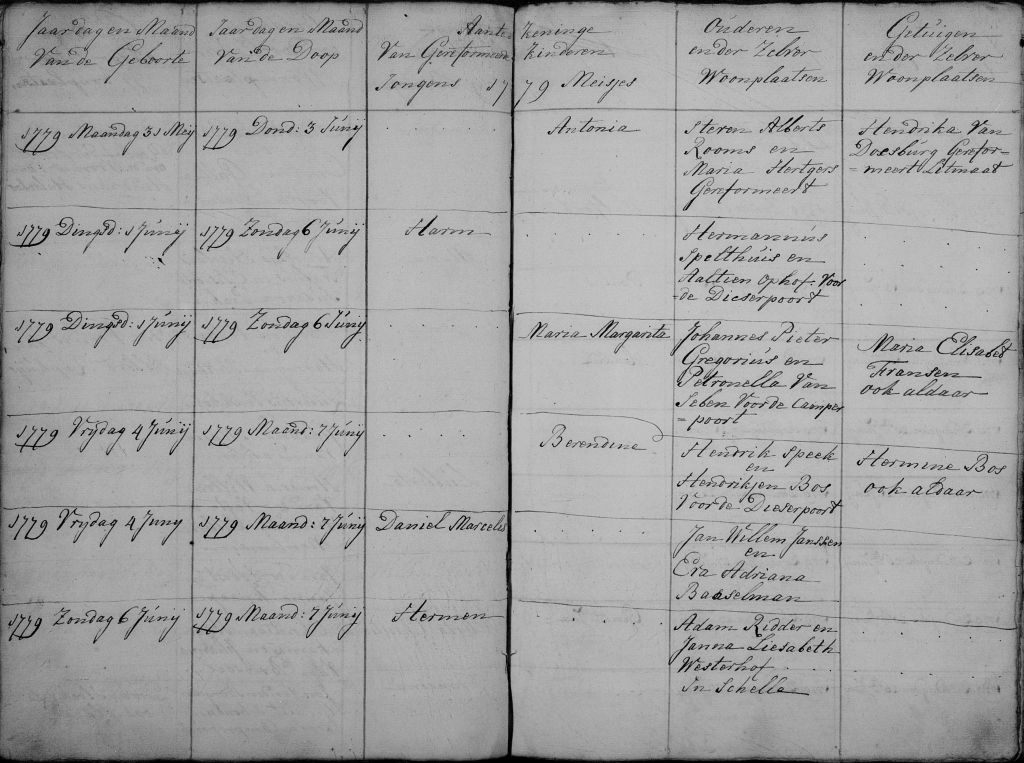 Jaar dag en Maand
Van de Geboorte
Jaar dag en Maand
Van de Doop
Aantekeninge
Van Gereformeerde kinderen
Jongens 1779 Meisjes
Ouderen
en der Zelver
Woonplaatsen
Getuigen
en der Zelver
Woonplaatsen
1779 Maandag 31 Meij
1779 Dond: 3 Junij
Antonia
Steven Alberts
Rooms en
Maria Hertgers
Gereformeert
Hendrika Van
Doesburg Gerefor=
=meert Litmaat
1779 Dingsd: 1 Junij
1779 Zondag 6 Junij
Harm
Hermannus
Spelthuis en
Aaltien Ophof Voor
=de Dieserpoort
1779 Dingsd: 1 Junij
1779 Zondag 6 Junij
Maria Margarita
Johannes Pieter
Gregorius en
Petronella Van
Seben Voor de Camper
=poort
Maria Elisabet
Fransen
ook aldaar
1779 Vrijdag 4 Junij
1779 Maand: 7 Junij
Berendine
Hendrik Speek
en
Hendrikjen Bos
Voor de Dieserpoort
Hermine Bos
ook aldaar
1779 Vrijdag 4 Junij
1779 Maand: 7 Junij
Daniel Marcelis
Jan Willem Janssen
en
Eva Adriana
Baaselman
1779 Zondag 6 Junij
1779 Maand: 7 Junij
Hermen
Adam Ridder en
Janna Liesabeth
Westerhof
in Schelle